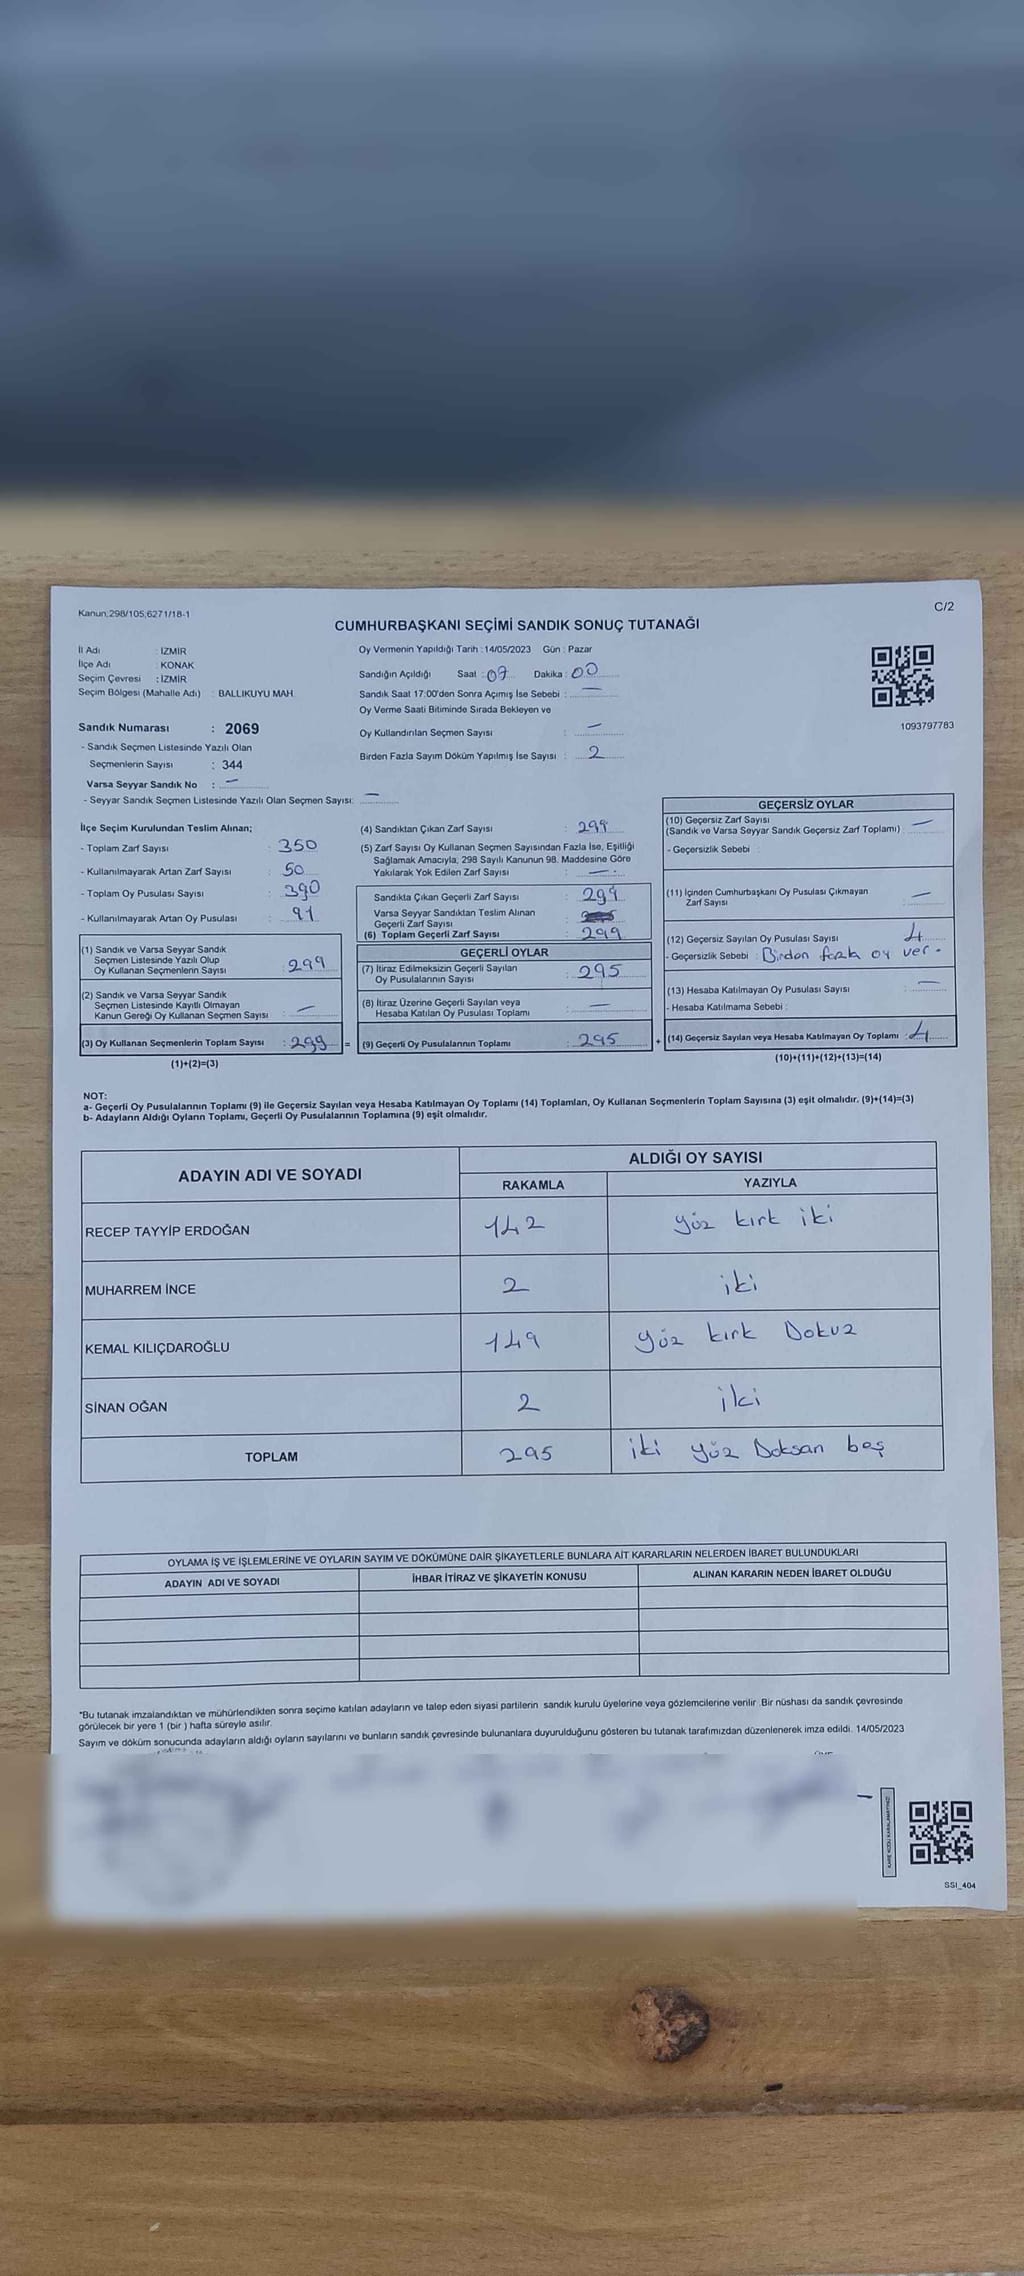 Kanun;298/105,6271/18-1
C/2
CUMHURBAŞKANI SEÇİMİ SANDIK SONUÇ TUTANAĞI
İl Adı : İZMİR
İlçe Adı : KONAK
Seçim Çevresi : İZMİR
Seçim Bölgesi (Mahalle Adı) : BALLIKUYU MAH.
Oy Vermenin Yapıldığı Tarih : 14/05/2023 Gün : Pazar
Sandığın Açıldığı Saat : 07 Dakika : 00
Sandık Saat 17:00'den Sonra Açımış İse Sebebi : —
Oy Verme Saati Bitiminde Sırada Bekleyen ve
Oy Kullandırılan Seçmen Sayısı : —
Birden Fazla Sayım Döküm Yapılmış İse Sayısı : 2
1093797783
Sandık Numarası : 2069
- Sandık Seçmen Listesinde Yazılı Olan
Seçmenlerin Sayısı : 344
Varsa Seyyar Sandık No : —
- Seyyar Sandık Seçmen Listesinde Yazılı Olan Seçmen Sayısı: —
İlçe Seçim Kurulundan Teslim Alınan;
- Toplam Zarf Sayısı : 350
- Kullanılmayarak Artan Zarf Sayısı : 50
- Toplam Oy Pusulası Sayısı : 390
- Kullanılmayarak Artan Oy Pusulası : 91
(1) Sandık ve Varsa Seyyar Sandık
Seçmen Listesinde Yazılı Olup
Oy Kullanan Seçmenlerin Sayısı : 299
(2) Sandık ve Varsa Seyyar Sandık
Seçmen Listesinde Kayıtlı Olmayan
Kanun Gereği Oy Kullanan Seçmen Sayısı : —
(3) Oy Kullanan Seçmenlerin Toplam Sayısı : 299 =
(1)+(2)=(3)
(4) Sandıktan Çıkan Zarf Sayısı : 299
(5) Zarf Sayısı Oy Kullanan Seçmen Sayısından Fazla İse, Eşitliği
Sağlamak Amacıyla, 298 Sayılı Kanunun 98. Maddesine Göre
Yakılarak Yok Edilen Zarf Sayısı : —
Sandıkta Çıkan Geçerli Zarf Sayısı : 299
Varsa Seyyar Sandıktan Teslim Alınan
Geçerli Zarf Sayısı :
(6) Toplam Geçerli Zarf Sayısı : 299
GEÇERLİ OYLAR
(7) İtiraz Edilmeksizin Geçerli Sayılan
Oy Pusulalarının Sayısı : 295
(8) İtiraz Üzerine Geçerli Sayılan veya
Hesaba Katılan Oy Pusulası Toplamı : —
(9) Geçerli Oy Pusulalarının Toplamı : 295 +
GEÇERSİZ OYLAR
(10) Geçersiz Zarf Sayısı
(Sandık ve Varsa Seyyar Sandık Geçersiz Zarf Toplamı) : —
- Geçersizlik Sebebi :
(11) İçinden Cumhurbaşkanı Oy Pusulası Çıkmayan
Zarf Sayısı : —
(12) Geçersiz Sayılan Oy Pusulası Sayısı : 4
- Geçersizlik Sebebi : Birden fazla oy ver-
(13) Hesaba Katılmayan Oy Pusulası Sayısı : —
- Hesaba Katılmama Sebebi :
(14) Geçersiz Sayılan veya Hesaba Katılmayan Oy Toplamı : 4
(10)+(11)+(12)+(13)=(14)
NOT:
a- Geçerli Oy Pusulalarının Toplamı (9) ile Geçersiz Sayılan veya Hesaba Katılmayan Oy Toplamı (14) Toplamları, Oy Kullanan Seçmenlerin Toplam Sayısına (3) eşit olmalıdır. (9)+(14)=(3)
b- Adayların Aldığı Oyların Toplamı, Geçerli Oy Pusulalarının Toplamına (9) eşit olmalıdır.
ADAYIN ADI VE SOYADI
ALDIĞI OY SAYISI
RAKAMLA YAZIYLA
RECEP TAYYİP ERDOĞAN 142 yüz kırk iki
MUHARREM İNCE 2 iki
KEMAL KILIÇDAROĞLU 149 yüz kırk Dokuz
SİNAN OĞAN 2 iki
TOPLAM 295 iki yüz Doksan beş
OYLAMA İŞ VE İŞLEMLERİNE VE OYLARIN SAYIM VE DÖKÜMÜNE DAİR ŞİKAYETLERLE BUNLARA AİT KARARLARIN NELERDEN İBARET BULUNDUKLARI
ADAYIN ADI VE SOYADI İHBAR İTİRAZ VE ŞİKAYETİN KONUSU ALINAN KARARIN NEDEN İBARET OLDUĞU
"Bu tutanak imzalandıktan ve mühürlendikten sonra seçime katılan adayların ve talep eden siyasi partilerin sandık kurulu üyelerine veya gözlemcilerine verilir .Bir nüshası da sandık çevresinde
görülecek bir yere 1 (bir ) hafta süreyle asılır.
Sayım ve döküm sonucunda adayların aldığı oyların sayılarını ve bunların sandık çevresinde bulunanlara duyurulduğunu gösteren bu tutanak tarafımızdan düzenlenerek imza edildi. 14/05/2023
KARE KODU KARALAMAYINIZ!
SSI_404